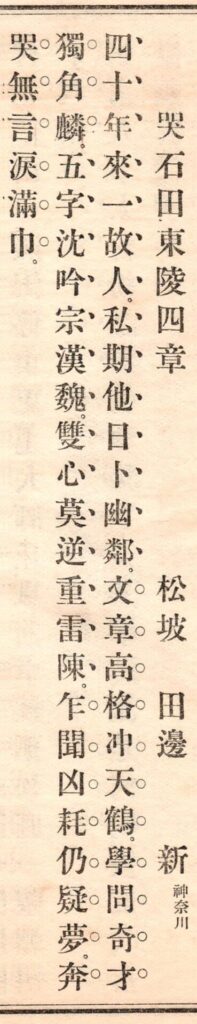 哭石田東陵四章　松坡　田邊　新 神奈川
四十年來一故人。私期他日卜幽鄰。文章高格冲天鶴。學問奇才
獨角麟。五字沈吟宗漢魏。雙心莫逆重雷陳。乍聞凶耗仍疑夢。奔
哭無言淚滿巾。